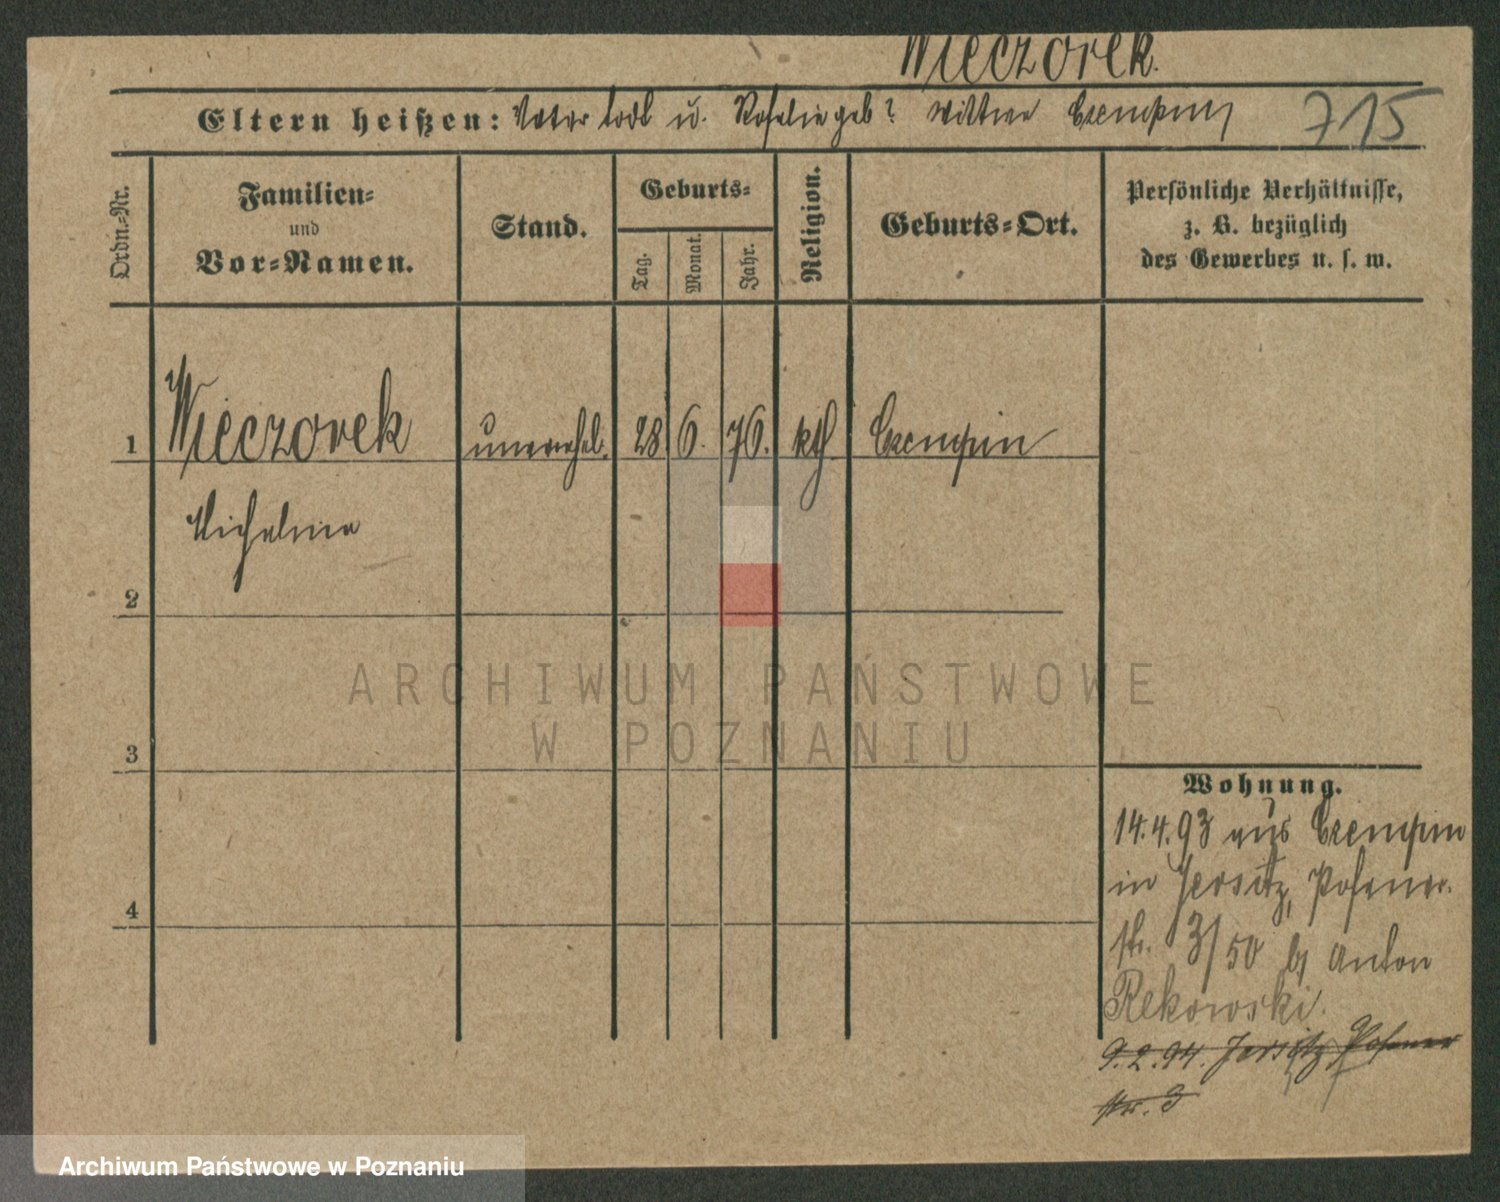 Wieczorek.
Eltern heißen: Vater todt u. Rosalie geb? Wittwe Czempin
715
Ordn.-Nr.
Familien-
und
Vor-Namen.
Stand.
Geburts-
Tag.
Monat.
Jahr.
Religion.
Geburts-Ort.
Persönliche Verhältnisse,
z. B. bezüglich
des Gewerbes u. s. w.
1 Wieczorek unverehel. 28 6. 76. kth Czempin
Michalina
2
3
4
ARCHIWUM PAŃSTWOWE
W POZNANIU
Wohnung.
14.4.93 aus Czempin
in Jersitz, Posener-
str. 3/50 b/ Anton
Rekowski.
9.2.94. Jersitz Posener
str. 3
Archiwum Państwowe w Poznaniu